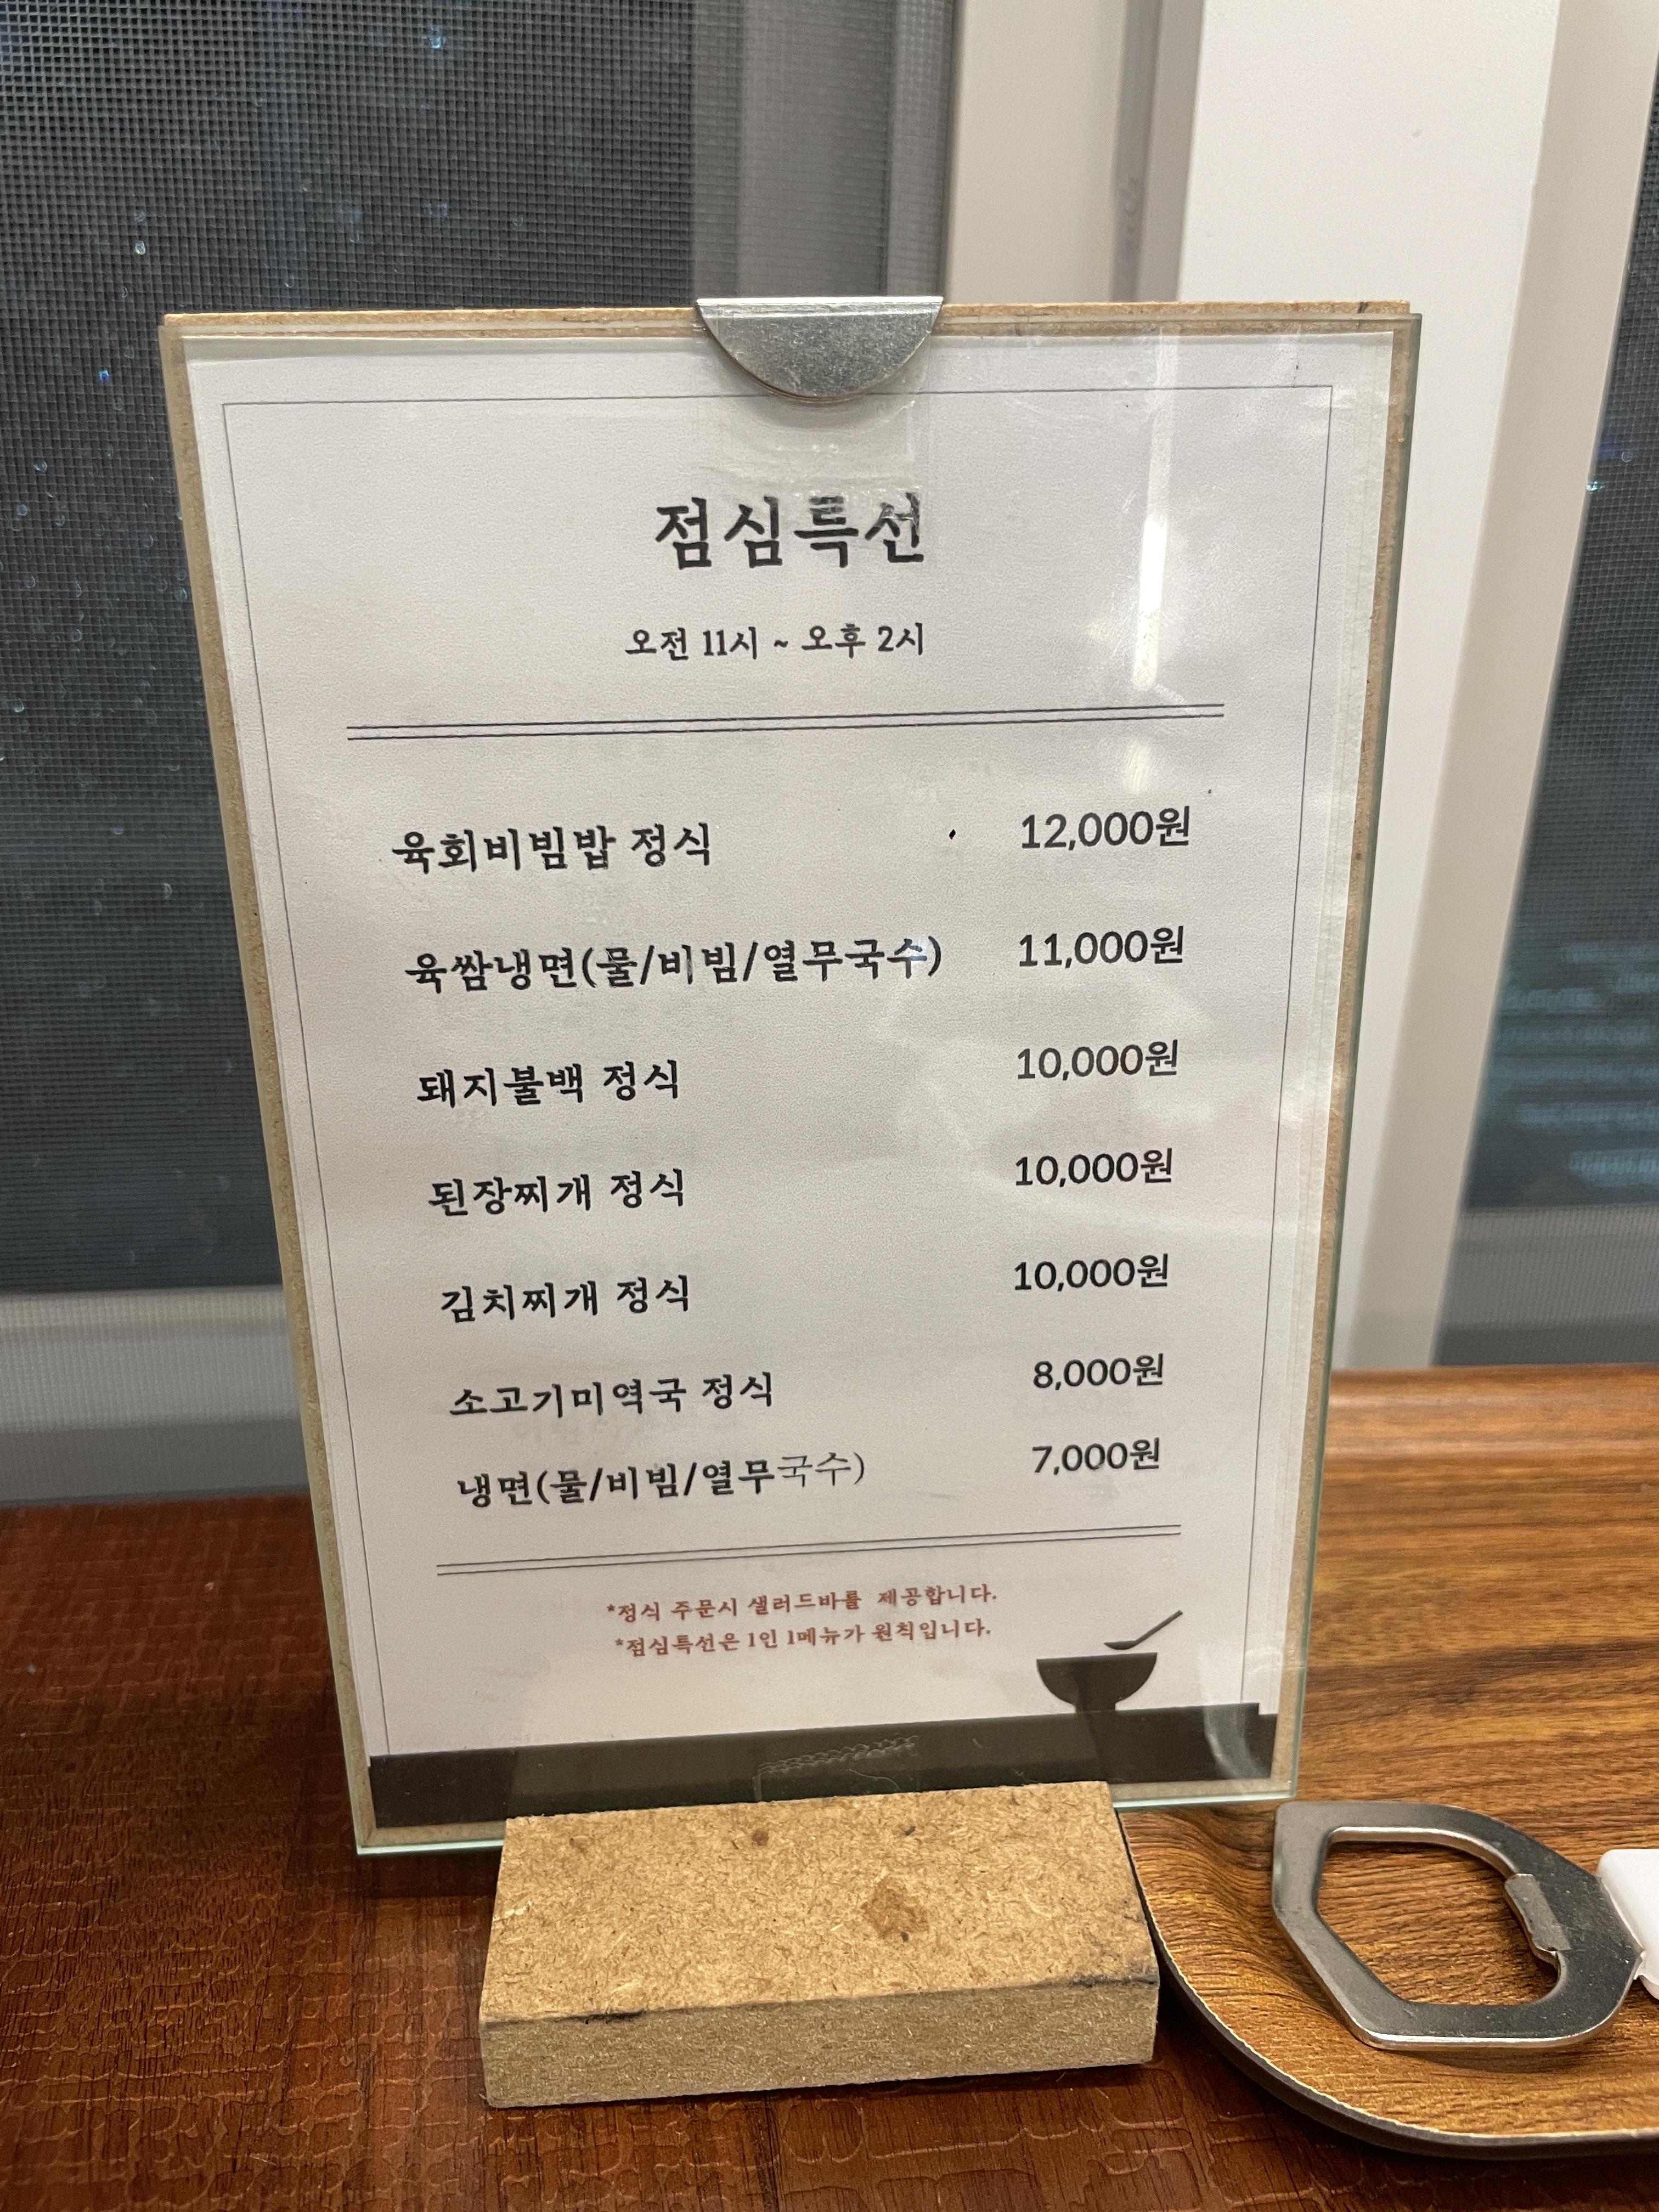 점심특선
오전 11시 ~ 오후 2시
육회비빔밥 정식 12,000원
육쌈냉면(물/비빔/열무국수) 11,000원
돼지불백 정식 10,000원
된장찌개 정식 10,000원
김치찌개 정식 10,000원
소고기미역국 정식 8,000원
냉면(물/비빔/열무국수) 7,000원
*정식 주문시 샐러드바를 제공합니다.
*점심특선은 1인 1메뉴가 원칙입니다.